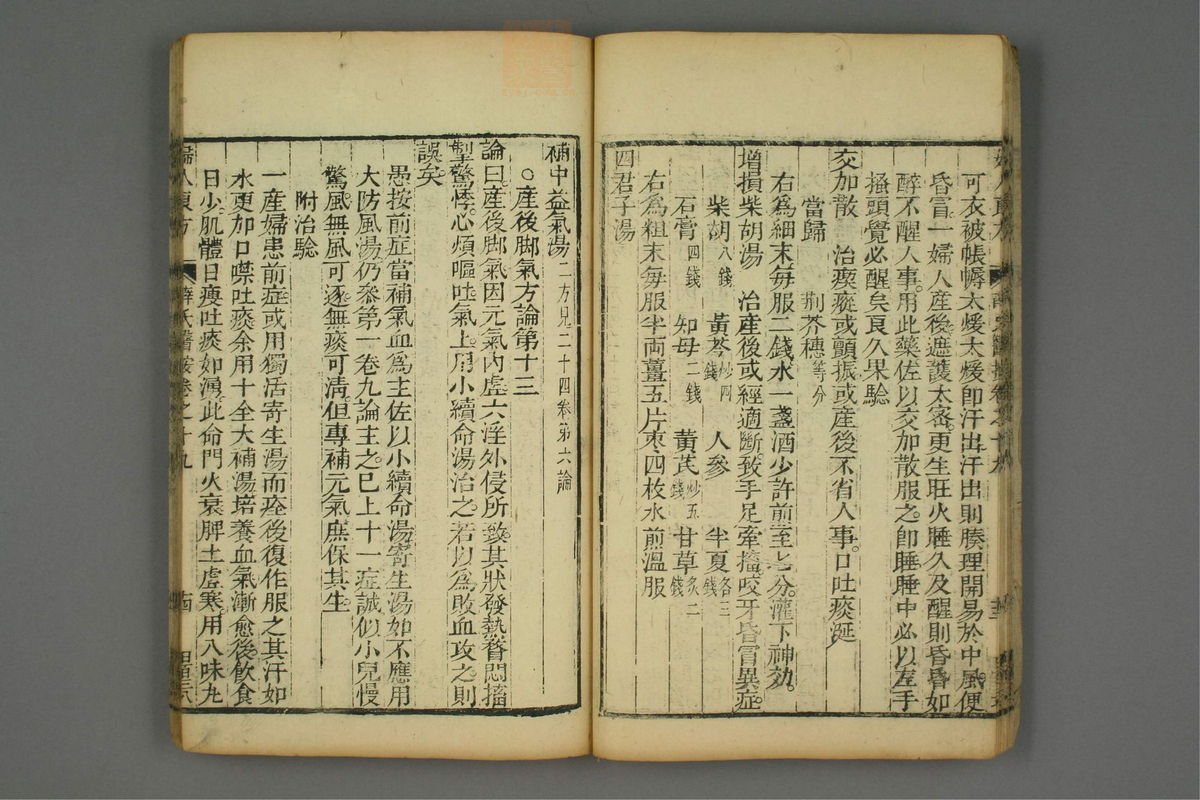 可衣被帳褥太煖太煖卽汗出汗出則腠理開易於中風便
昏冒一婦人産後遮護太密更生旺火睡久及醒則昏昏如
醉不醒人事用此藥佐以交加散服之卽睡睡中必以左手
搔頭覺必醒矣良久果騐
交加散　治瘈瘲或顫振或産後不省人事口吐痰涎
當歸　荆芥穗等分
右爲細末毎服二錢水一盞酒少許前至七分灌下神効
增損柴胡湯　治産後或經適斷致手足牽搐咬牙昏冒異症
柴胡八錢　黃芩炒四錢　人參　半夏各三錢
石膏四錢　知母二錢　黃芪炒五錢　甘草炙二錢
右爲粗末毎服半両薑五片枣四枚水煎溫服
四君子湯
補中益氣湯二方見二十四卷第六論
○産後脚氣方論第十三
論曰産後脚氣因元氣內虚六淫外侵所致其狀發熱瞀悶搐
掣驚悸心煩嘔吐氣上用小續命湯治之若以爲敗血攻之則
誤矣
愚按前症當補氣血爲主佐以小續命湯寄生湯如不應用
大防風湯仍叅第一卷九論主之已上十一症誠似小兒慢
驚風無風可逐無痰可淸但專補元氣庶保其生
附治騐
一産婦患前症或用獨活寄生湯而痊後復作服之其汗如
水更加口噤吐痰余用十全大補湯培養血氣漸愈後飮食
日少肌體日瘦吐痰如湧此命門火衰脾土虚寒用八味丸
婦人良方　薛氏醫按卷之十九